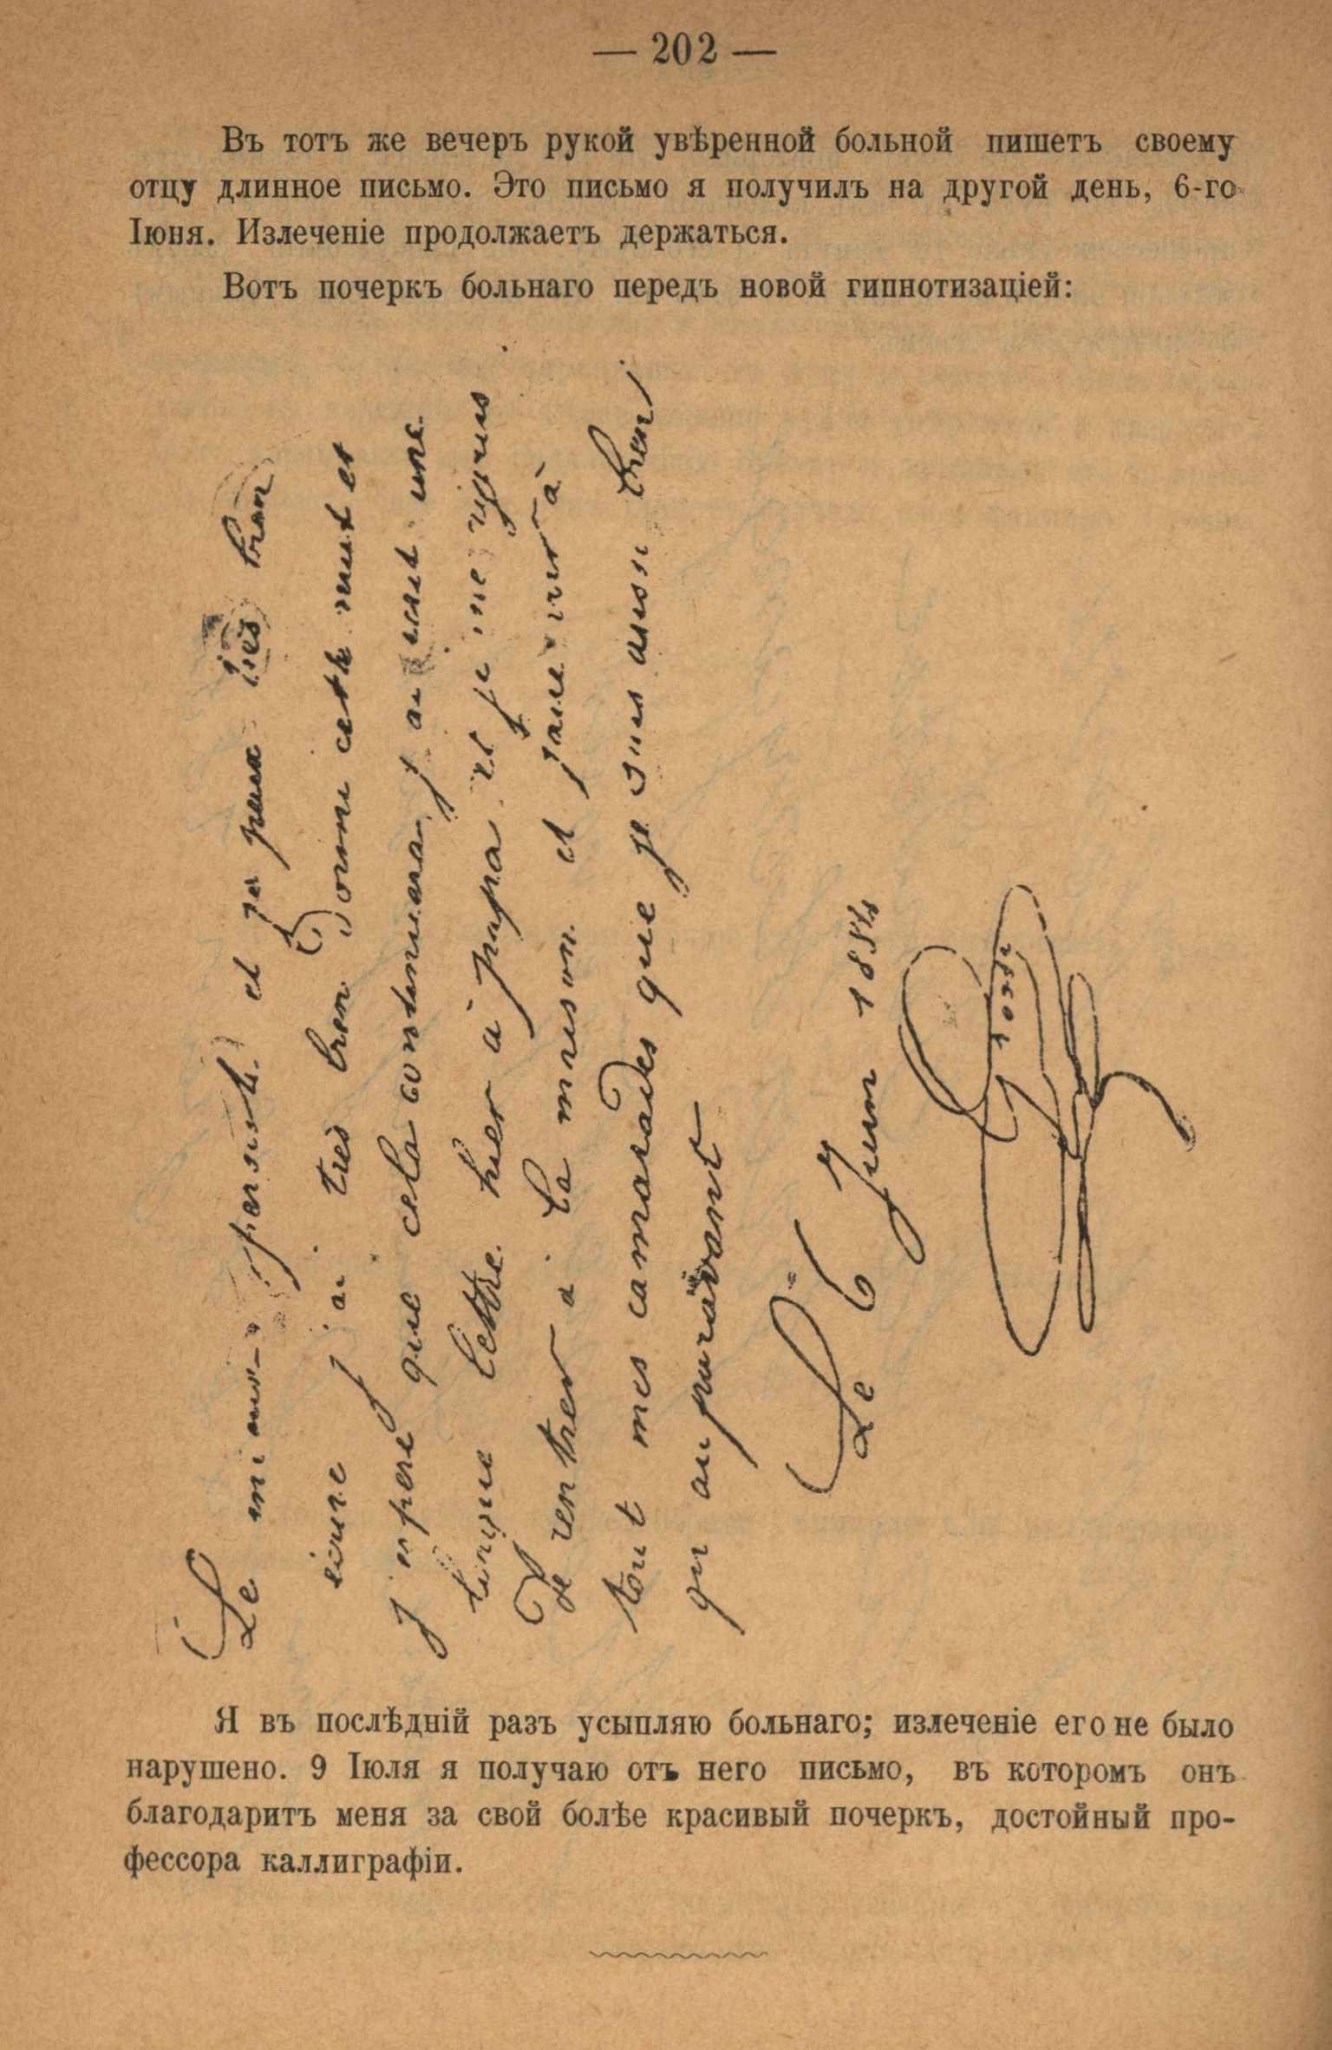 — 202 —
Въ тотъ же вечеръ рукой увѣренной больной пишетъ своему
отцу длинное письмо. Это письмо я получилъ на другой день, 6-го
Іюня. Излеченіе продолжаетъ держаться.
Вотъ почеркъ больнаго передъ новой гипнотизаціей:
Le mieux persiste et je peux très bien
ecrire j'ai très bien Dormi cette nuit et
j'espere que cela continuera j'ai ecrit une
longue lettre hier à papa et je me rejouis
de rentrer à la maison et pouvoir à
tout mes camarades que je suis aussi bien
qu'auparavant
Le 6 Juin 1884
Я въ послѣдній разъ усыпляю больнаго; излеченіе его не было
нарушено. 9 Іюля я получаю отъ него письмо, въ которомъ онъ
благодаритъ меня за свой болѣе красивый почеркъ, достойный про-
фессора каллиграфіи.